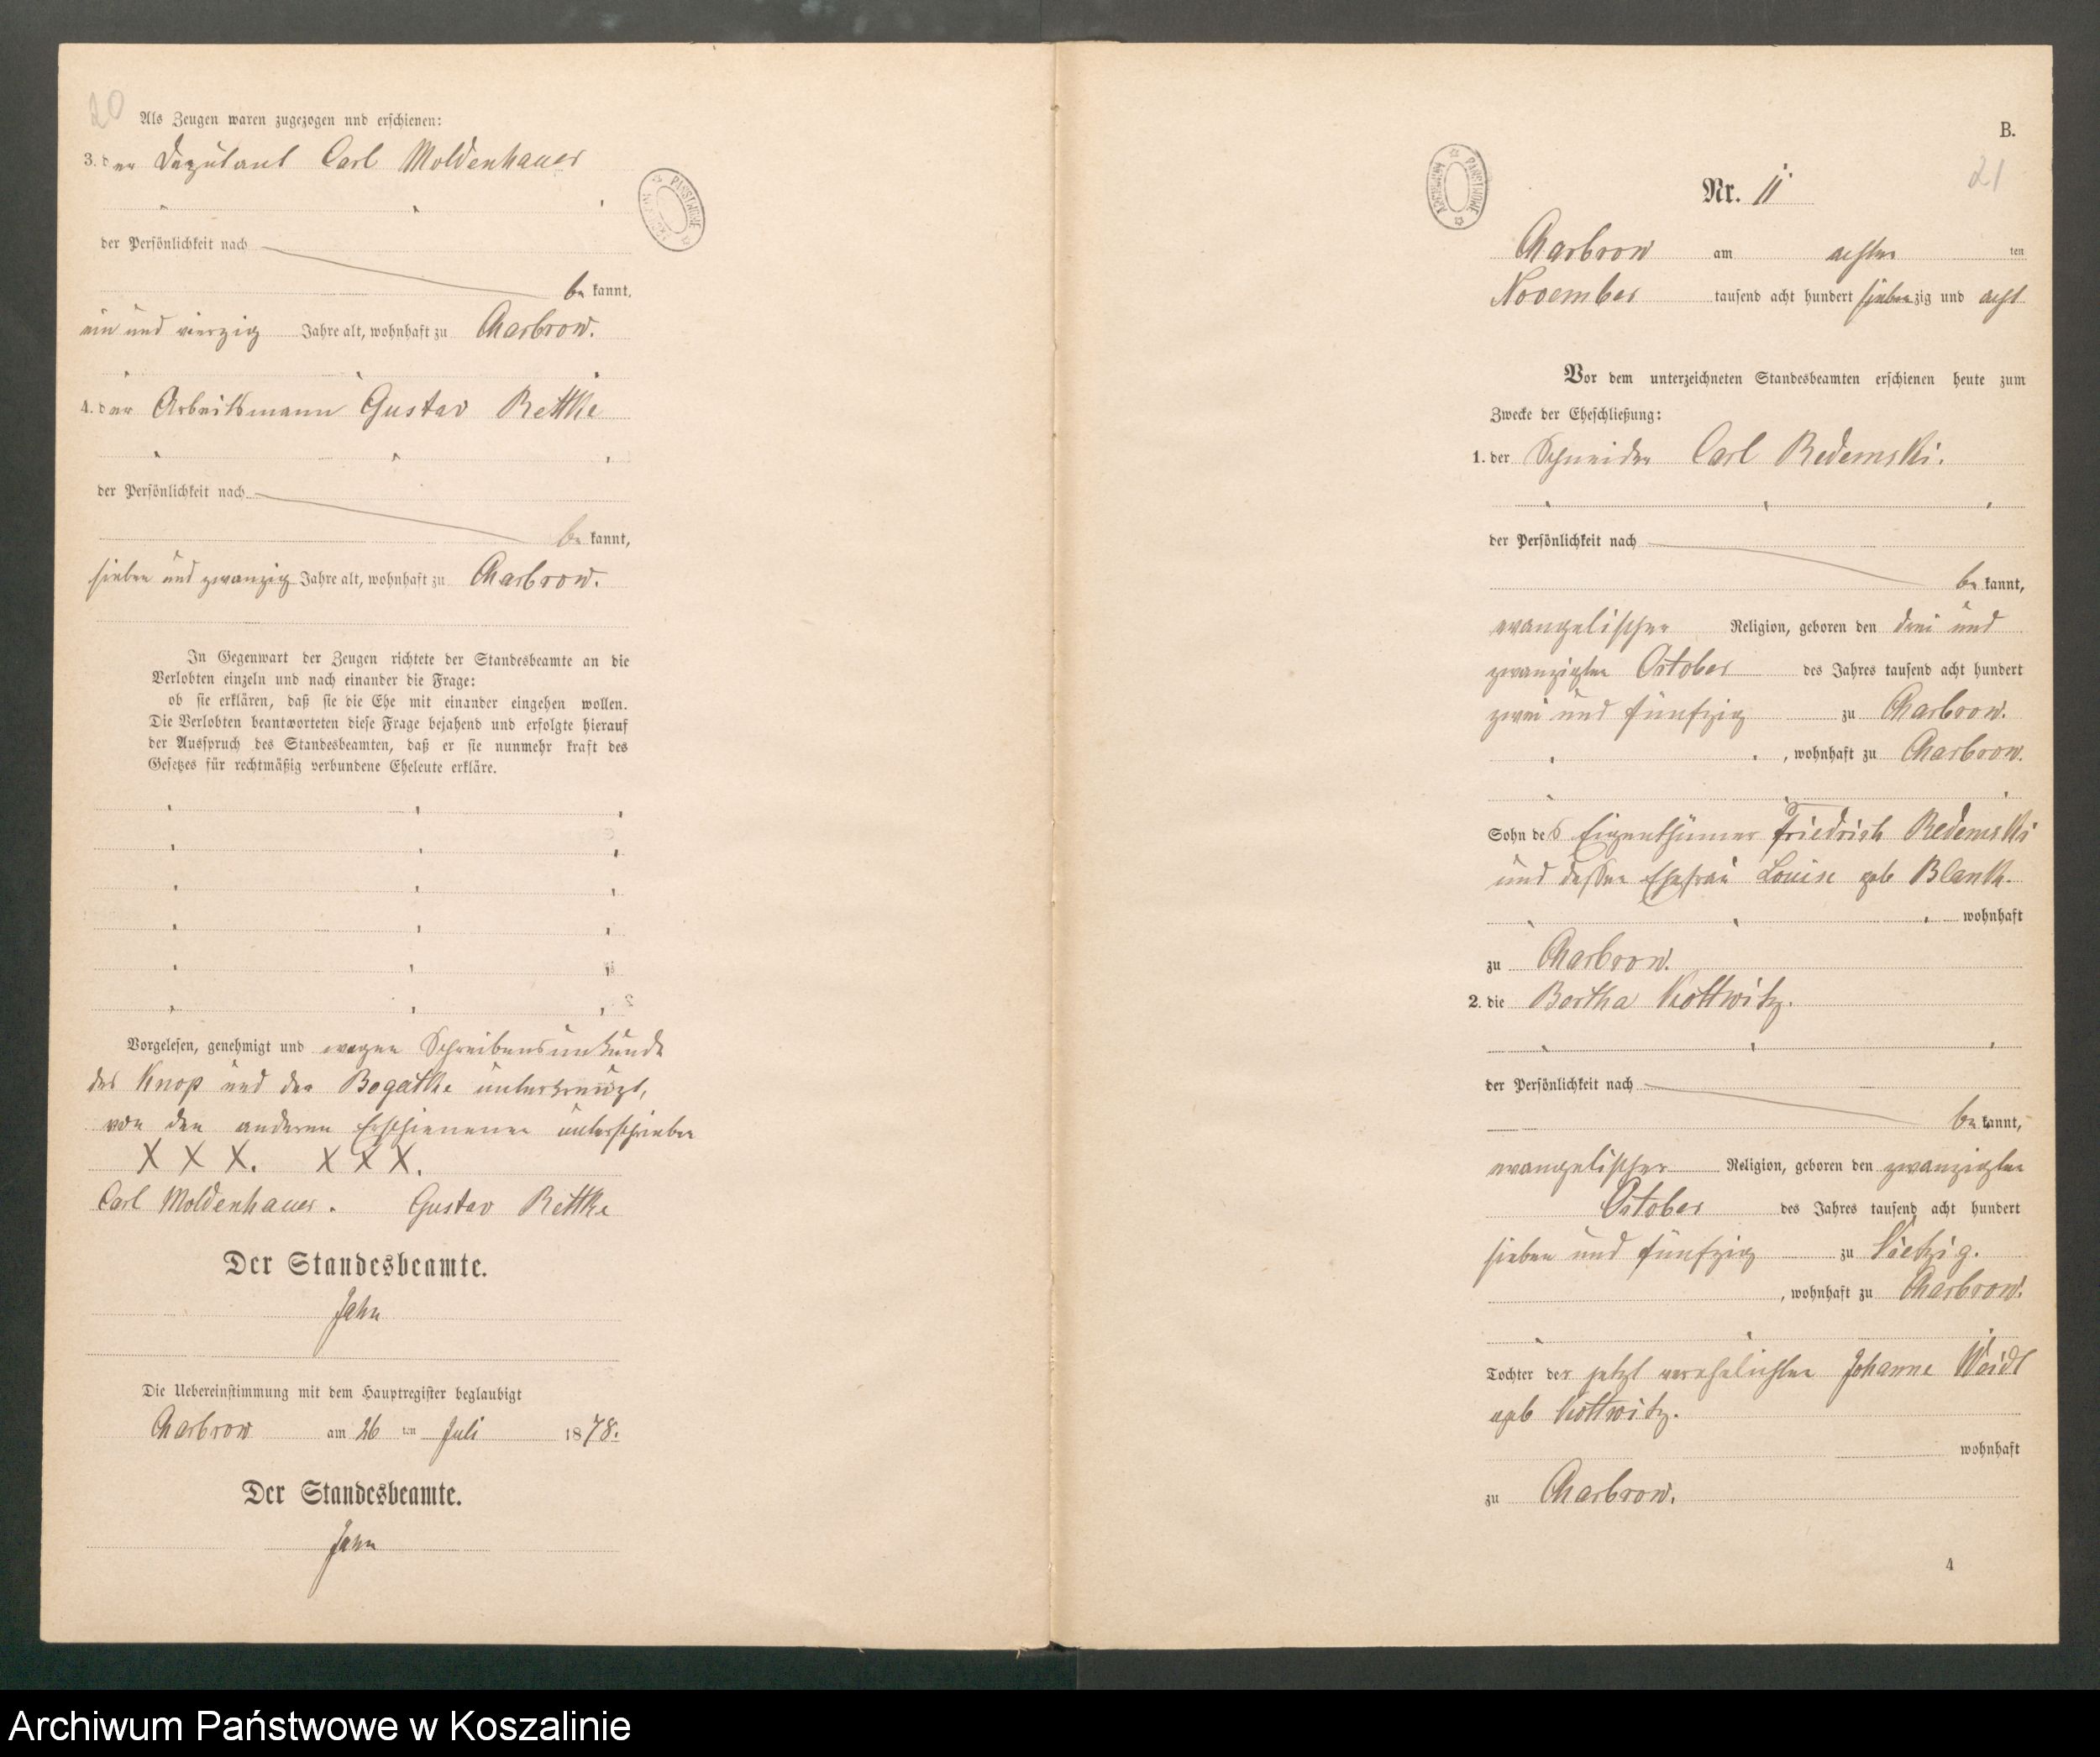 20
Als Zeugen waren zugezogen und erschienen:
3. der Deputant Carl Moldenhauer
der Persönlichkeit nach
be kannt,
ein und vierzig Jahre alt, wohnhaft zu Charbrow.
4. der Arbeitsmann Gustav Rettke
der Persönlichkeit nach
be kannt,
sieben und zwanzig Jahre alt, wohnhaft zu Charbrow.
In Gegenwart der Zeugen richtete der Standesbeamte an die
Verlobten einzeln und nach einander die Frage:
ob sie erklären, daß sie die Ehe mit einander eingehen wollen.
Die Verlobten beantworteten diese Frage bejahend und erfolgte hierauf
der Ausspruch des Standesbeamten, daß er sie nunmehr kraft des
Gesetzes für rechtmäßig verbundene Eheleute erkläre.
Vorgelesen, genehmigt und wegen Schreibensunkunde
des Knop und der Bogatke unterkreuzt,
von den anderen Erschienenen unterschrieben
X X X. X X X.
Carl Moldenhauer. Gustav Rettke
Der Standesbeamte.
Jahn
Die Uebereinstimmung mit dem Hauptregister beglaubigt
Charbrow am 26 ten Juli 1878.
Der Standesbeamte.
Jahn
B.
21
ARCHIWUM PAŃSTWOWE
Nr. 11
Charbrow am achten ten
November tausend acht hundert siebenzig und acht
Vor dem unterzeichneten Standesbeamten erschienen heute zum
Zwecke der Eheschließung:
1. der Schneider Carl Redemski.
der Persönlichkeit nach
be kannt,
evangelischer Religion, geboren den drei und
zwanzigsten October des Jahres tausend acht hundert
zwei und fünfzig zu Charbrow.
, wohnhaft zu Charbrow.
Sohn des Eigenthümer Friedrich Redemski
und dessen Ehefrau Louise geb Blank.
wohnhaft
zu Charbrow.
2. die Bertha Kottwitz.
der Persönlichkeit nach
be kannt,
evangelischer Religion, geboren den zwanzigsten
October des Jahres tausend acht hundert
sieben und fünfzig zu Vietzig.
, wohnhaft zu Charbrow.
Tochter der jetzt verehelichten Johanne
geb Kottwitz.
wohnhaft
zu Charbrow.
4
Archiwum Państwowe w Koszalinie